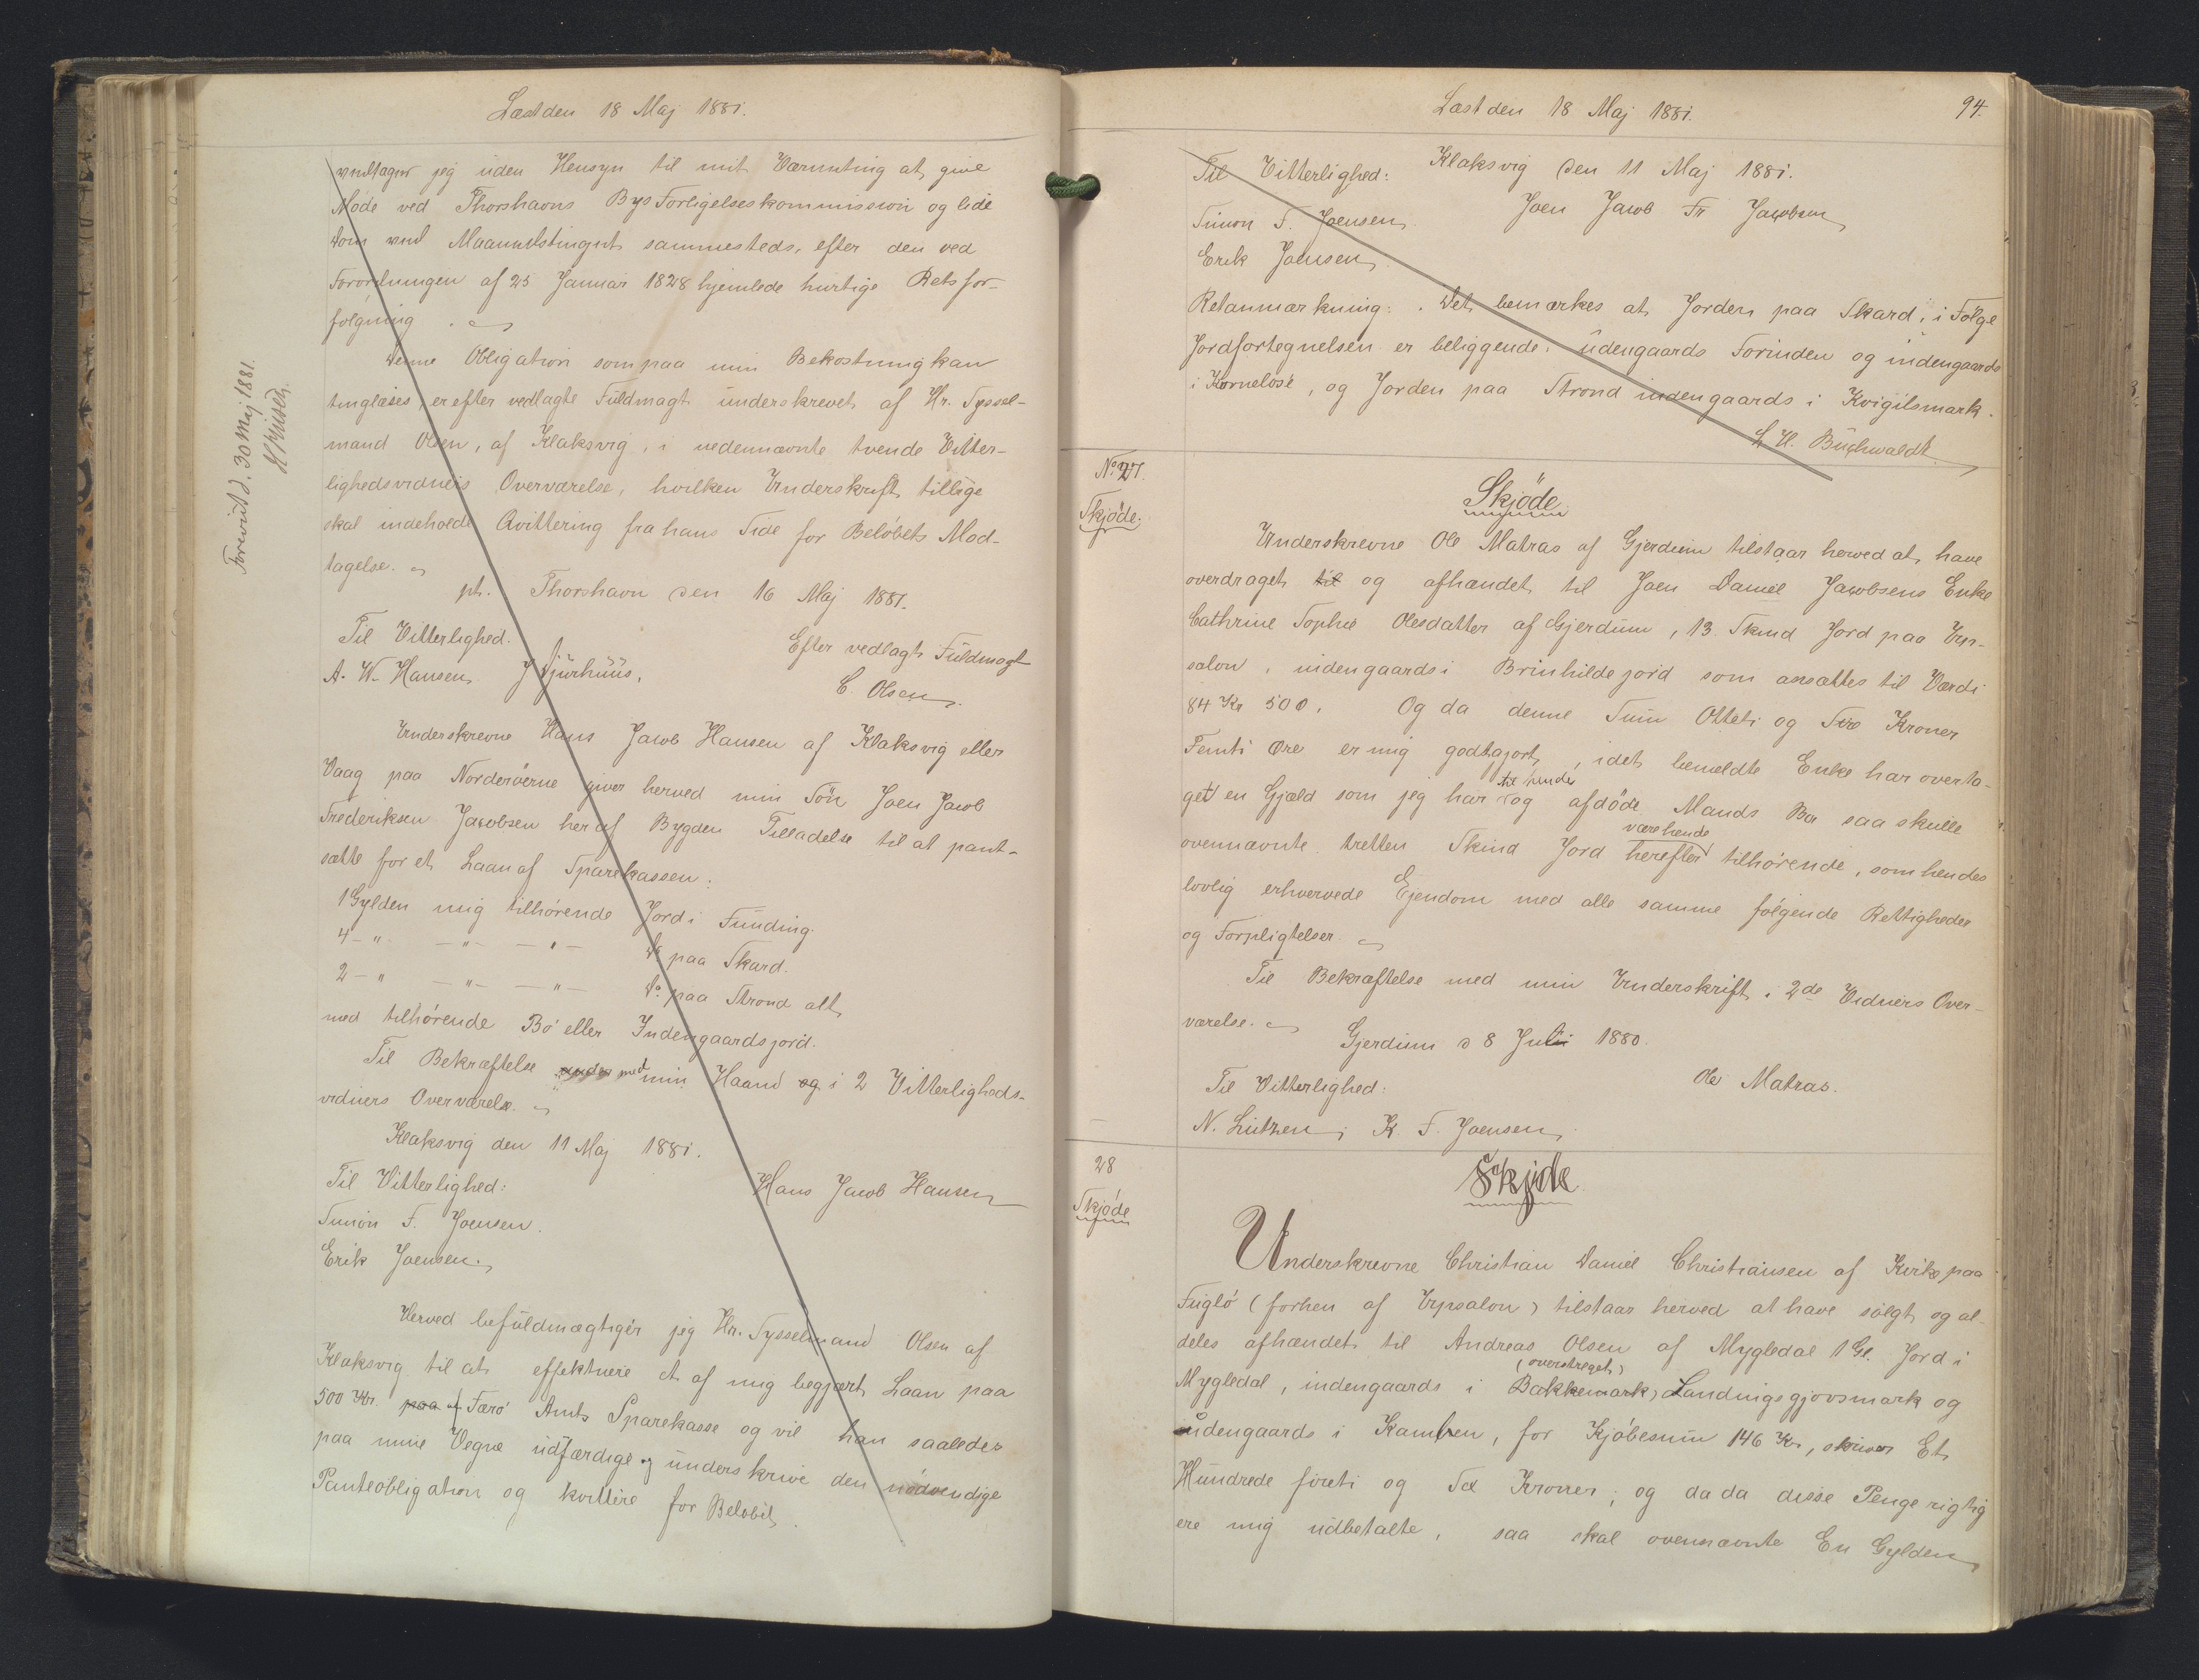 Læst den 18 Maj 1881.
undtager jeg uden Hensyn til mit Værneting at give
Møde ved Thorshavns Bys Forligelseskommission og lide
Dom ved Maanedstinget sammesteds, efter den ved
Forordningen af 25 Januar 1828 hjemlede hurtige Retsfor-
følgning.
Denne Obligation som paa min Bekostning kan
tinglæses, er efter vedlagte Fuldmagt underskrevet af Hr. Syssel-
mand Olsen, af Klaksvig, i nedennævnte tvende Vitter-
lighedsvidners Overværelse, hvilken Underskrift tillige
skal indeholde Qvittering fra hans Side for Beløbets Mod-
tagelse.
pt. Thorshavn den 16 Maj 1881.
Til Vitterlighed. Efter vedlagt Fuldmagt
A. W. Hansen J Djurhuus, C. Olsen
Underskrevne Hans Jacob Hansen af Klaksvig eller
Vaag paa Norderøerne giver herved min Søn Joen Jacob
Frederiksen Jacobsen her af Bygden Tilladelse til at pant-
sætte for et Laan af Sparekassen:
1 Gylden mig tilhørende Jord i Funding
4 - " - " - " - Do paa Skard.
2 - " - " - " - Do. paa Strond alt
med tilhørende Bø eller Indengaardsjord.
Til Bekræftelse under med min Haand og i 2 Vitterligheds-
vidners Overværelse.
Klaksvig den 11 Maj 1881.
Til Vitterlighed: Hans Jacob Hansen
Simon F. Joensen.
Erik Joensen.
Herved befuldmægtiger jeg Hr. Sysselmand Olsen af
Klaksvig til at effektuere et af mig begjært Laan paa
500 Kr. paa af Færø Amts Sparekasse og vil han saaledes
paa mine Vegne udfærdige og underskrive den nødvendige
Panteobligation og kvittere for Beløbet.
Forevist d. 30 Maj 1881.
Læst den 18 Maj 1881. 94.
Til Vitterlighed: Klaksvig den 11 Maj 1881.
Simon F. Joensen Joen Jacob Fr Jacobsen
Erik Joensen
Retanmærkning: Det bemærkes at Jorden paa Skard, i Følge
Jordfortegnelsen er beliggende: udengaards Forinden og indengaards
i Kornelose, og Jorden paa Strond indengaards i Kvigilsmark.
L H. Buchwaldt
No. 27.
Skjøde.
Skjøde
Underskrevne Ole Matras af Gjerdum tilstaar herved at have
overdraget til og afhændet til Joen Daniel Jacobsens Enke
Cathrine Sophie Olesdatter af Gjerdum, 13 Skind Jord paa Urp-
salon, indengaards i Brinhildejord som ansættes til Værdi
84 Kr 50 Ø. Og da denne Sum Otteti og Fire Kroner
Femti Øre er mig godtgjort, idet bemeldte Enke har overta-
get en Gjæld som jeg har til hendes og afdøde Mands Bo saa skulle
ovennævnte tretten Skind Jord herefter være hende tilhørende, som hendes
lovlig erhvervede Ejendom med alle samme følgende Rettigheder
og Forpligtelser
Til Bekræftelse med min Underskrift i 2de Vidners Over-
værelse.
Gjerdum d 8 Juli 1880.
Til Vitterlighed: Ole Matras.
N. Lützen, K. F. Joensen
28
Skjøde
Skjøde
Underskrevne Christian Daniel Christiansen af Kirke paa
Fuglø (forhen af Urpsalon) tilstaar herved at have solgt og al-
deles afhændet til Andreas Olsen af Mygledal 1 Gl. Jord i
Mygledal, indengaards i Bakkemark, (overstreget) Landingsgjovsmark og
udengaards i Kamben, for Kjøbesum 146 Kr, skriver Et
Hundrede føreti og Sex Kroner; og da da disse Penge rigtig
ere mig udbetalte, saa skal ovennævnte En Gylden